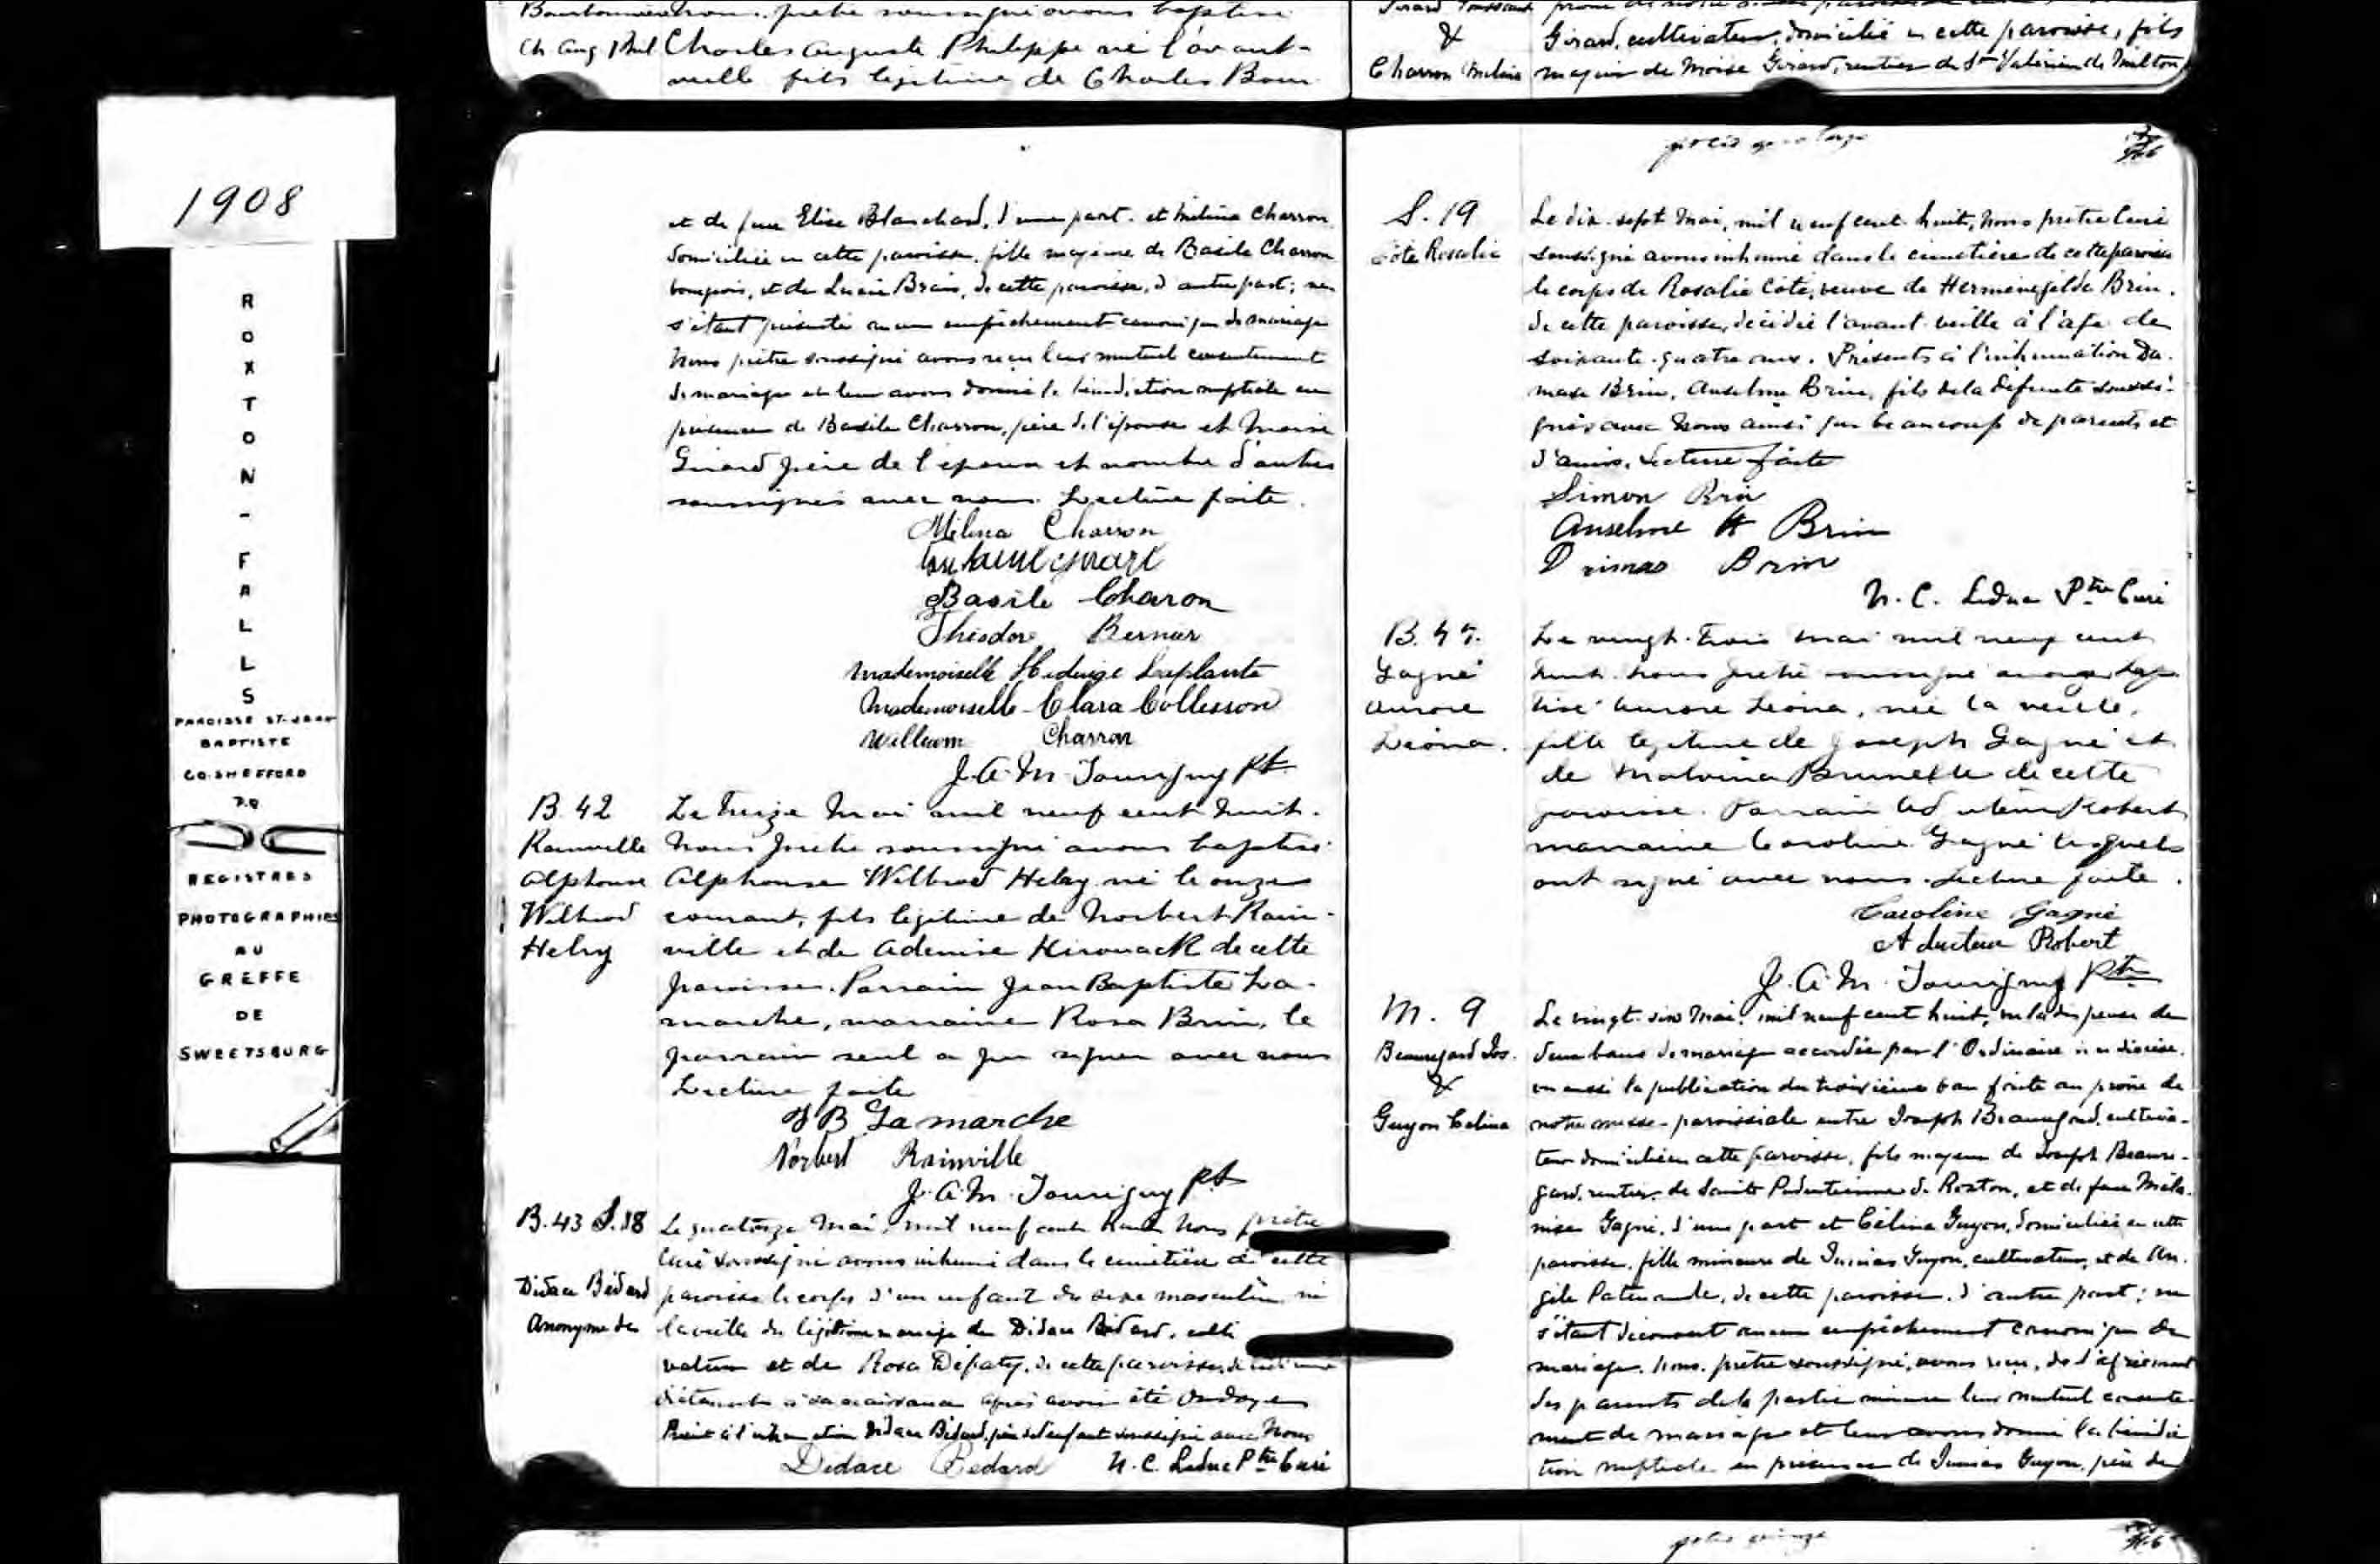 1908
ROXTON-FALLS
PAROISSE ST-JEAN
BAPTISTE
CO. SHEFFORD
P.Q
REGISTRES
PHOTOGRAPHIES
AU
GREFFE
DE
SWEETSBURG
prêtre soussigné avons baptisé
Ch Aug. Phil Charles Auguste Philippe né l'avant-
veille fils légitime de Charles Bour
et de feue Elise Blanchard, d'une part. et Mélina Charron
domiciliée en cette paroisse, fille majeure de Basile Charron
bourgeois, et de Lucie Brin, de cette paroisse, d'autre part; ne
s'étant présenté aucun empêchement canonique de mariage
Nous prêtre soussigné avons reçu leur mutuel consentement
de mariage et leur avons donné la bénédiction nuptiale en
présence de Basile Charron, père de l'épouse et Moïse
Girard père de l'époux et nombre d'autres
soussignés avec nous. Lecture faite.
Mélina Charron
Basile Charon
Théodore Bernar
Mademoiselle Hedwige Laplante
Mademoiselle Clara Collesson
William Charron
J. A. M. Tourigny Pt
B. 42
Rainville
Alphonse
Wilbrod
Helry
Le treize Mai mil neuf cent huit.
Nous prêtre soussigné avons baptisé
Alphonse Wilbrod Helry né le onze
courant, fils légitime de Norbert Rain-
ville et de Ademise Kirouack de cette
paroisse. Parrain Jean Baptiste La-
marche, marraine Rosa Brin, le
parrain seul a pu signer avec nous
Lecture faite
J B Lamarche
Norbert Rainville
J. A. M. Tourigny Pt
B. 43 S. 18
Didace Bédard
Anonyme de
Le quatorze Mai, mil neuf cent huit Nous prêtre
Curé soussigné avons inhumé dans le cimetière de cette
paroisse le corps d'un enfant du sexe masculin né
la veille du légitime mariage de Didace Bédard, culti
vateur et de Rosa Dépaty, de cette paroisse,
à sa naissance après avoir été ondoyé
Présent à l'inhumation Didace Bédard, père de l'enfant soussigné avec Nous
Didace Bedard N. C. Leduc Ptre Curé
Girard Toussaint
&
Charron Mélina
Girard, cultivateur, domicilié en cette paroisse, fils
majeur de Moïse Girard, rentier de St Valérien de Milton
S. 19
Côté Rosalie
Le dix-sept Mai, mil neuf cent huit, Nous prêtre Curé
soussigné avons inhumé dans le cimetière de cette paroisse
le corps de Rosalie Côté, veuve de Herménégilde Brin,
de cette paroisse, décédée l'avant-veille à l'âge de
soixante-quatre ans. Présents à l'inhumation Da-
mase Brin, Anselme Brin, fils de la défunte soussi-
gnés avec Nous ainsi que beaucoup de parents et
d'amis. Lecture faite
Simon Brin
Anselme H Brin
Brin
N. C. Leduc Ptre Curé
B. 44.
Gagné
Aurore
Léona.
Le vingt-trois mai mil neuf cent
huit nous prêtre soussigné avons bap
tisé Aurore Léona, née la veille,
fille légitime de Joseph Gagné et
de Malvina Brunelle de cette
paroisse. Parrain Robert
marraine Caroline Gagné lesquels
ont signé avec nous. Lecture faite.
Caroline Gagné
Robert
J. A. M. Tourigny Ptre
M. 9
Beauregard Jos.
&
Guyon Célina
Le vingt-six Mai, mil neuf cent huit, vu la dispense de
deux bans de mariage accordée par l'Ordinaire de ce diocèse,
vu aussi la publication du troisième ban faite au prône de
notre messe-paroissiale entre Joseph Beauregard, cultiva-
teur domicilié en cette paroisse, fils majeur de Joseph Beaure-
gard, rentier de Sainte Pudentienne de Roxton, et de feue
Gagné, d'une part et Célina Guyon, domiciliée en cette
paroisse, fille mineure de Guyon, cultivateur, et de An-
gèle Patenaude, de cette paroisse, d'autre part; ne
s'étant découvert aucun empêchement canonique de
mariage, Nous, prêtre soussigné, avons reçu, de l'agrément
des parents de la partie mineure leur mutuel consente-
ment de mariage et leur avons donné la bénédic
tion nuptiale en présence de Guyon, père de